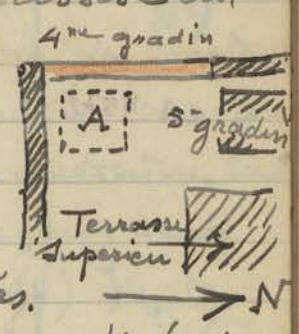 4me gradin
A
5e gradin
Terrasse
Superieu
és.
N